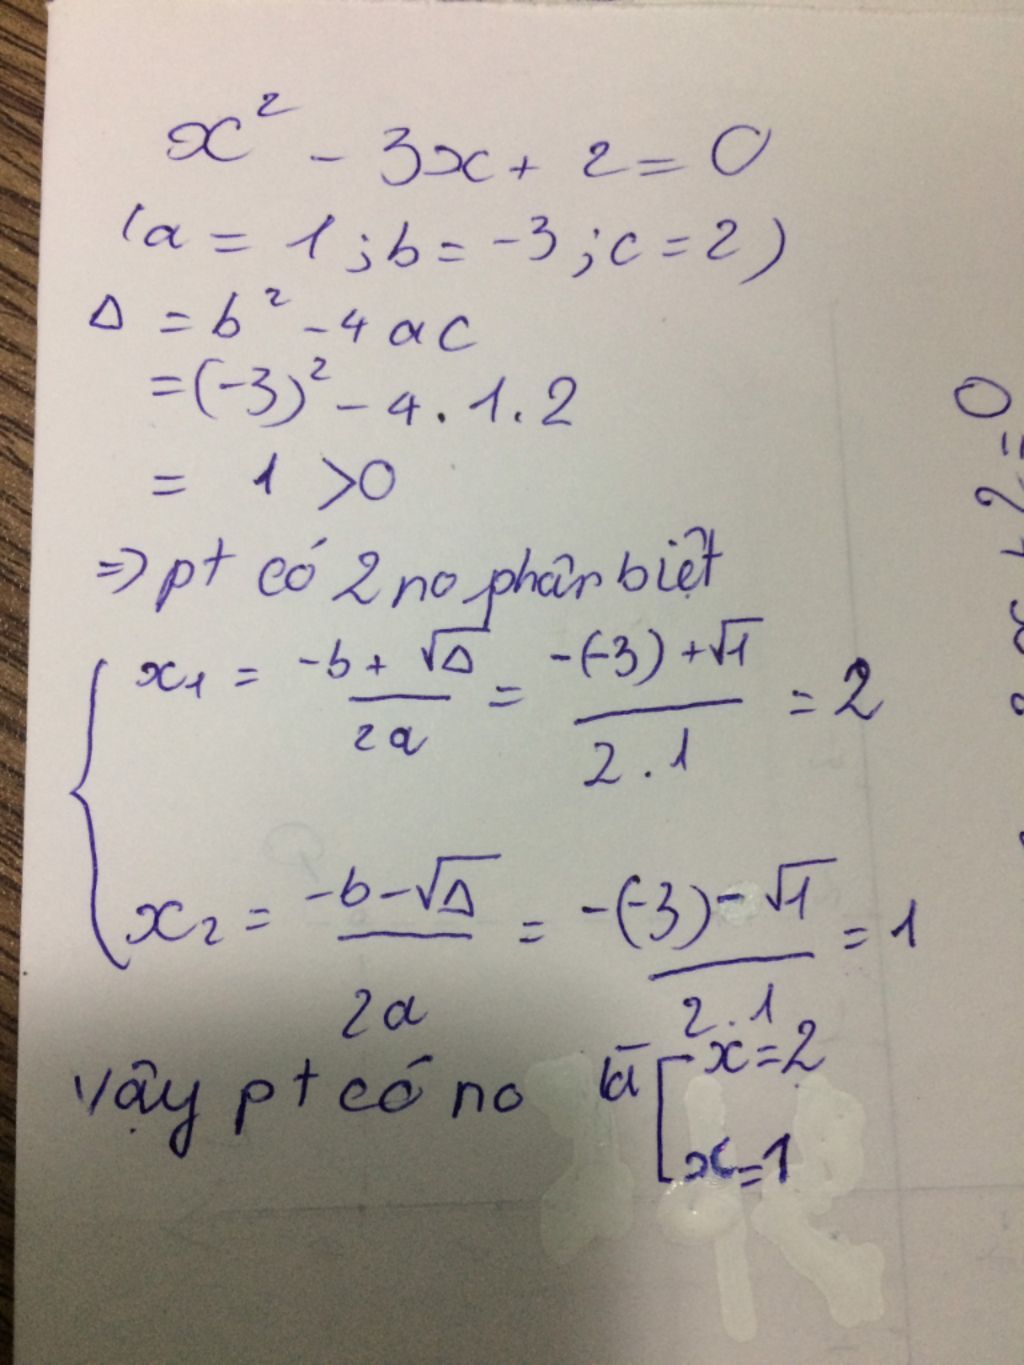 x² - 3x + 2 = 0
(a = 1 ; b = -3 ; c = 2)
Δ = b² - 4ac
= (-3)² - 4 . 1 . 2
= 1 > 0
=> pt có 2 no phân biệt
x₁ = (-b + √Δ)/(2a) = (-(-3) + √1)/(2 . 1) = 2
x₂ = (-b - √Δ)/(2a) = (-(-3) - √1)/(2 . 1) = 1
Vậy pt có no là [ x = 2
x = 1